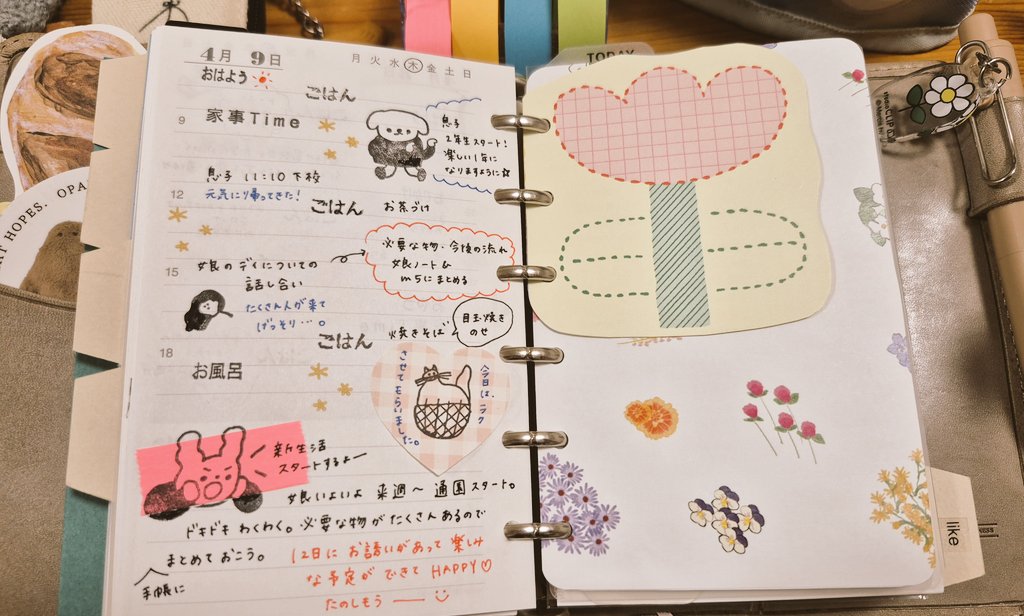 4月 9日
月 火 水 木 金 土 日
おはよう
ごはん
9
家事Time
息子
2年生スタート!
楽しい1年に
なりますように☆
息子 11:10 下校
12
元気に帰ってきた!
ごはん お茶づけ
必要な物・今後の流れ
娘ノート&
m5にまとめる
15
娘のデイについての
話し合い
たくさん人が来て
げっそり…。
目玉焼き
のせ
ごはん 焼きそば
18
お風呂
今日は、ニック
させてもらいました。
新生活
スタートするよー
娘いよいよ 来週〜 通園スタート。
ドキドキ わくわく。必要な物がたくさんあるので
まとめておこう。
手帳に
12日に お誘いがあって 楽しみ
な予定が できて HAPPY♡
たのしもう
TODAY
HOPES.
OPA
like